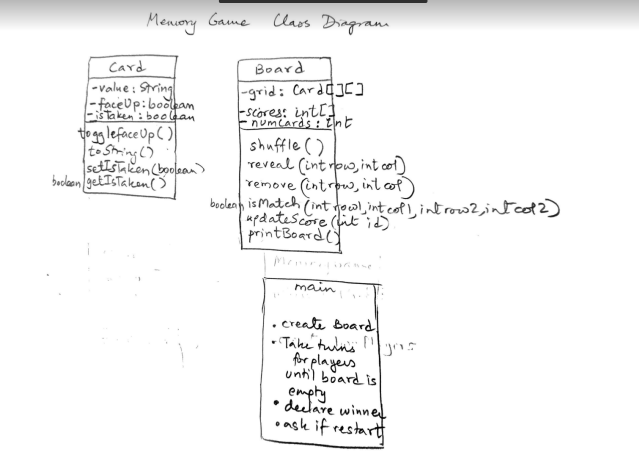 Memory Game Class Diagram
Card
-value: String
-faceUp: boolean
-isTaken: boolean
togglefaceUp()
toString()
setIsTaken(boolean)
boolean getIsTaken()
Board
-grid: Card[][]
-scores: int[]
-numCards: int
shuffle()
reveal(int row, int col)
remove(int row, int col)
boolean isMatch(int row1, int col1, int row2, int col2)
updateScore(int id)
printBoard()
main
• create Board
• Take turns
for players
until board is
empty
• declare winner
• ask if restart